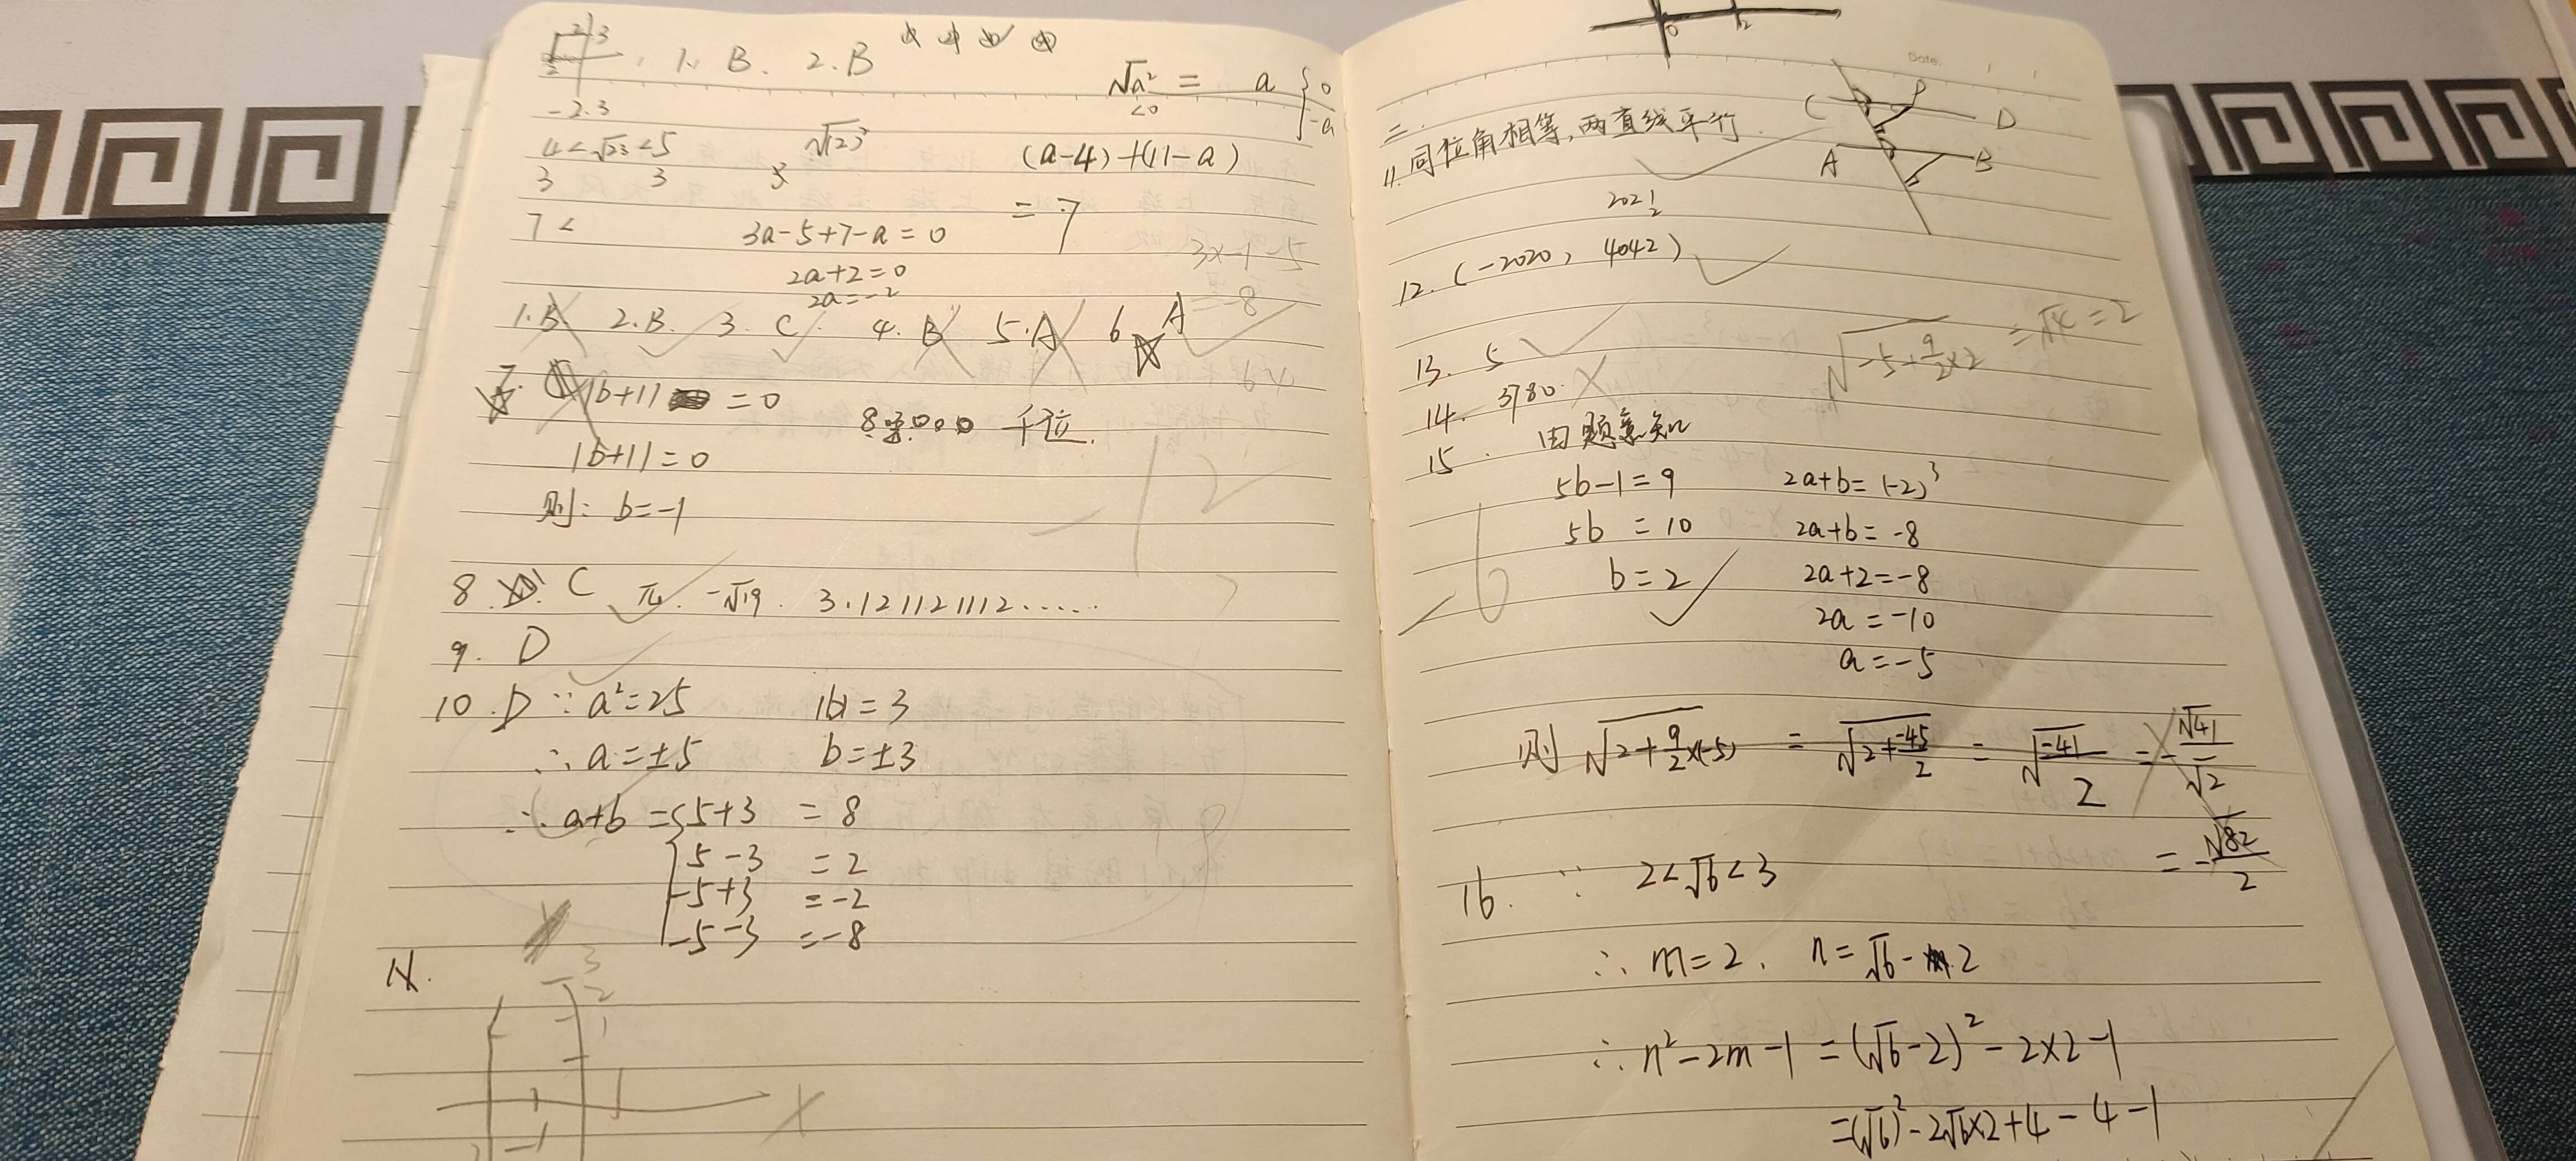 1. B. 2. B
√a² = a { 0
<0 -a
-2.3
4<√23<5
√123
(a-4)+(11-a)
3 3
= 7
7<
3a-5+7-a=0
3x-1-5
2a+2=0
2a=-2
-8
1.B 2.B. 3. C. 4. B 5.A 6 A
7. |b+1| = 0
千位.
|b+1|=0
则: b=-1
-12
8. C π. -√19. 3.121121112......
9. D
10. D ∵ a²=25 |b|=3
∴ a=±5 b=±3
∴ a+b = { 5+3 = 8
5-3 = 2
-5+3 = -2
-5-3 = -8
3
2
1
-1
0 2
Date.
二.
11.同位角相等,两直线平行.
C P D
A B
202½
12. (-2020, 4042)
13. 5
√-5+9/2×2 = √4 = 2
14. 3780.
15. 由题意知
5b-1=9 2a+b=(-2)³
5b =10 2a+b=-8
b=2 2a+2=-8
-6
2a=-10
a=-5
则 √2+9/2×(-5) = √2+-45/2 = √-41/2 = -√41/√2
= -√82/2
16. ∵ 2<√6<3
∴ m=2. n=√6-2
∴ n²-2m-1=(√6-2)²-2×2-1
=(√6)²-2√6×2+4-4-1